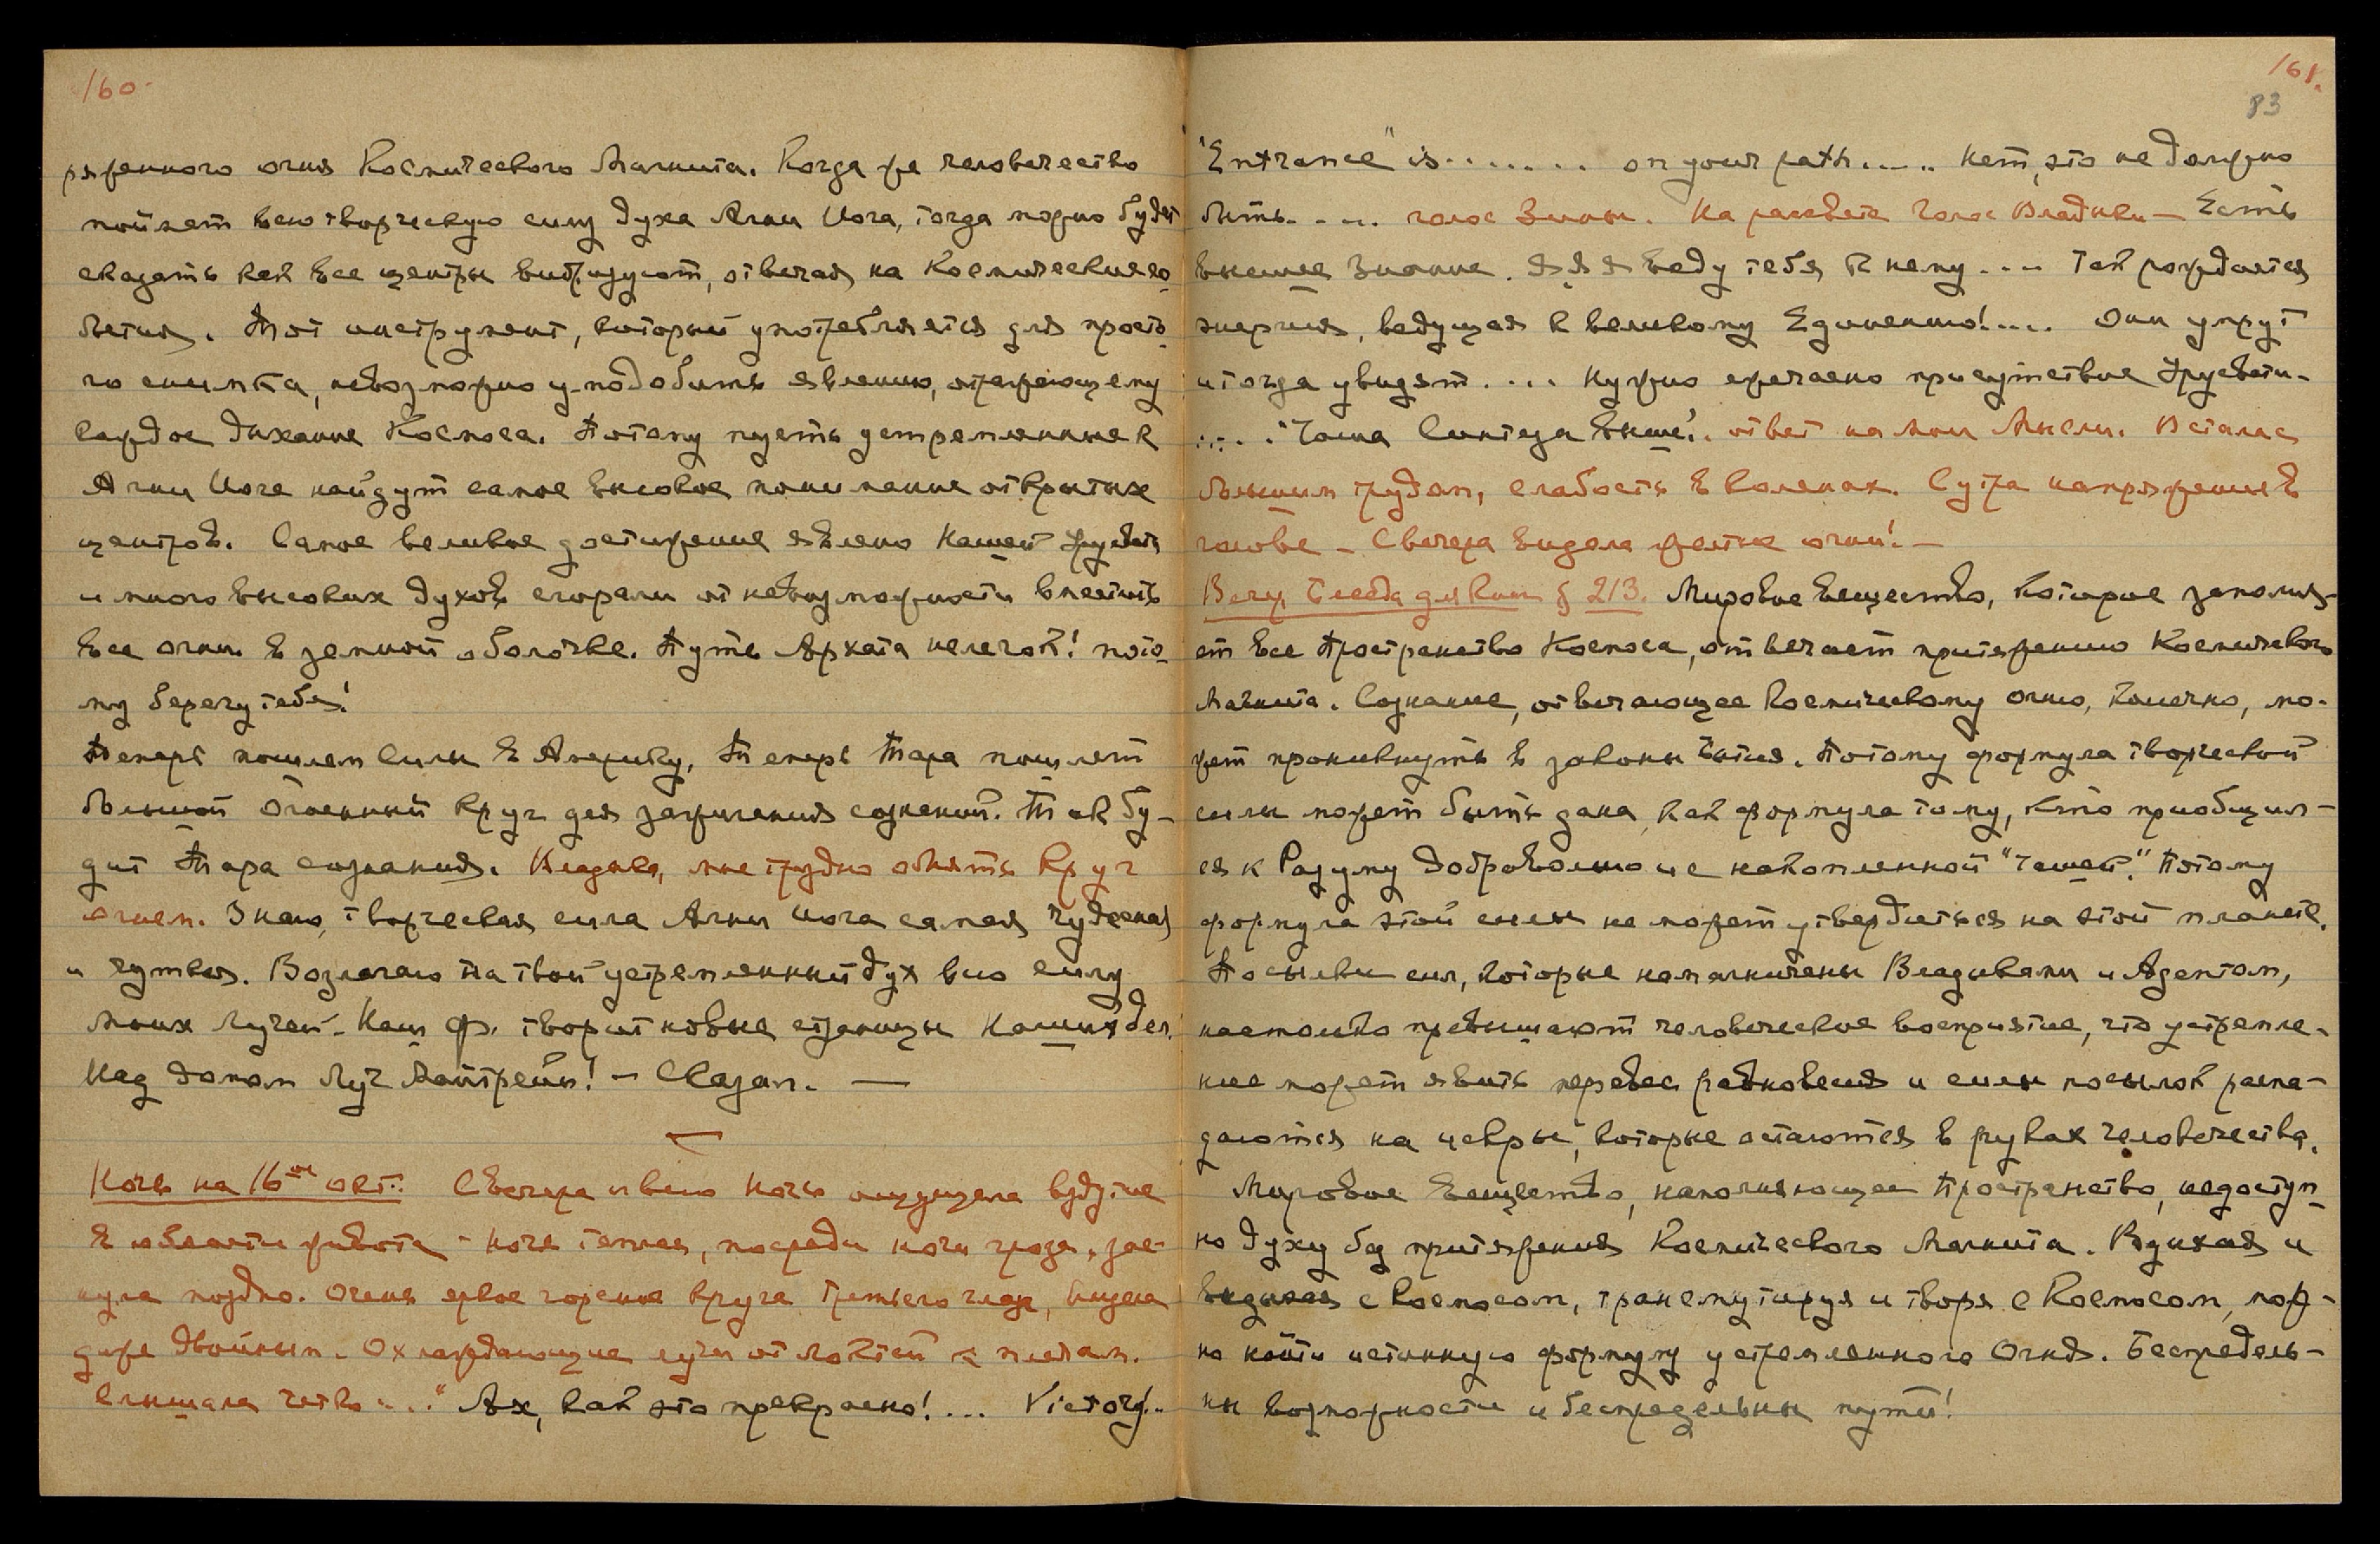 160
ряженного огня Космического Магнита. Когда же человечество
поймет всю творческую силу духа Агни Йога, тогда можно будет
сказать как все центры вибрируют, отвечая на Космические со-
бытия. Тот инструмент, который употребляется для просто-
го снимка, невозможно уподобить явлению, отражающему
каждое дыхание Космоса. Потому пусть устремленные к
Агни Йоге найдут самое высокое понимание открытых
центров. Самое великое достижение явлено Нашей Урусвати
и много высоких духов сгорали от невозможности вместить
все огни в земной оболочке. Путь Архата нелегок! пото-
му берегу тебя!
Теперь пошлем силы в Америку, Теперь Тара пошлет
большой огненный круг для зажигания сознаний. Так бу-
дит Тара сознания. Владыка, мне трудно обнять круг
огнем. Знаю, творческая сила Агни Йога самая чудесная
и чуткая. Возлагаю на твой устремленный дух всю силу
Моих Лучей. Наш Ф. творит новые страницы Наших дел.
Над домом Луч Майтрейи! – Сказал. —
Ночь на 16ое окт.: С вечера и всю ночь ощущала вздутие
в области живота – ночь теплая, посреди ночи гроза, зас-
нула поздно. Очень яркое горение круга Третьего глаза, видела
даже двойным. Охлаждающие лучи от локтей к плечам.
Слышала четко ..." Ах, как это прекрасно!... Victory!..
161.
83
"Entrance" is....... on your path..... нет, это не должно
быть..... голос Зины. На рассвете Голос Владыки — Есть
высшее Знание. Я, Я, Я веду тебя к нему.... Так рождается
энергия, ведущая к великому Единению!.... Они умрут
и тогда увидят.... Нужно ежечасно присутствие Урусвати-
..... "Чаша Синтеза выше".. ответ на мои мысли. Встала с
большим трудом, слабость в коленах. С утра напряжение в
голове – С вечера видела желтые огни! –
Веч. Беседа для Книги § 213. Мировое вещество, которое заполня-
ет все Пространство Космоса, отвечает притяжению Космического
Магнита. Сознание, отвечающее Космическому огню, конечно, мо-
жет проникнуть в законы Бытия. Потому формула творческой
силы может быть дана, как формула тому, кто приобщил-
ся к Разуму добровольно и с накопленной "Чашей". Потому
формула этой силы не может утвердиться на этой планете.
Посылки сил, которые намагничены Владыками и Адептом,
настолько превышают человеческое восприятие, что устремле-
ние может явить перевес равновесия и силы посылок распа-
даются на искры, которые остаются в руках человечества.
Мировое вещество, наполняющее Пространство, недоступ-
но духу без притяжения Космического Магнита. Вдыхая и
выдыхая с Космосом, трансмутируя и творя с Космосом, мож-
но найти истинную формулу устремленного Огня. Беспредель-
ны возможности и беспредельны пути!